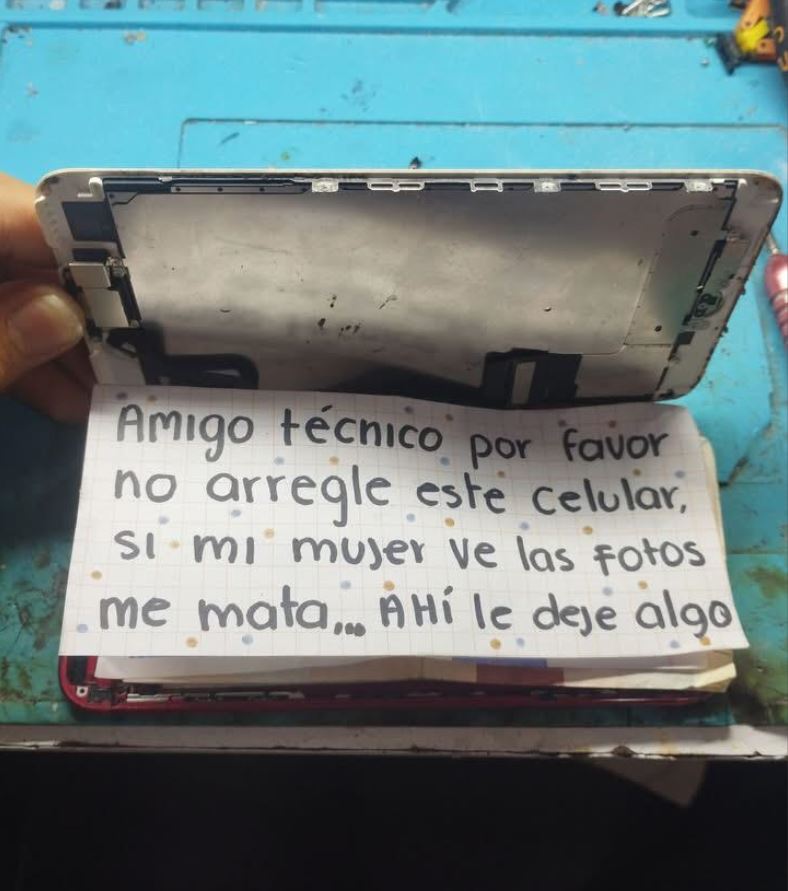 Amigo técnico por favor
no arregle este celular,
si mi mujer ve las fotos
me mata... AHí le deje algo